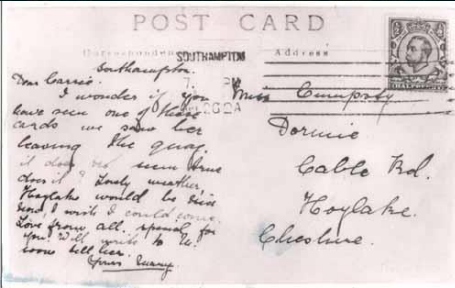 POST CARD
Correspondence
Address
SOUTHAMPTON
Southampton.
Dear Carrie:
I wonder if you
have seen one of these
cards we saw her
leaving the quay.
it does not seem true
does it? Lovely weather,
Hoylake would be nice
now, I wish I could come.
Love from all. special for
you. Will write to
soon tell her.
Yours
Miss
Dormie
Cable Rd.
Hoylake.
Cheshire.